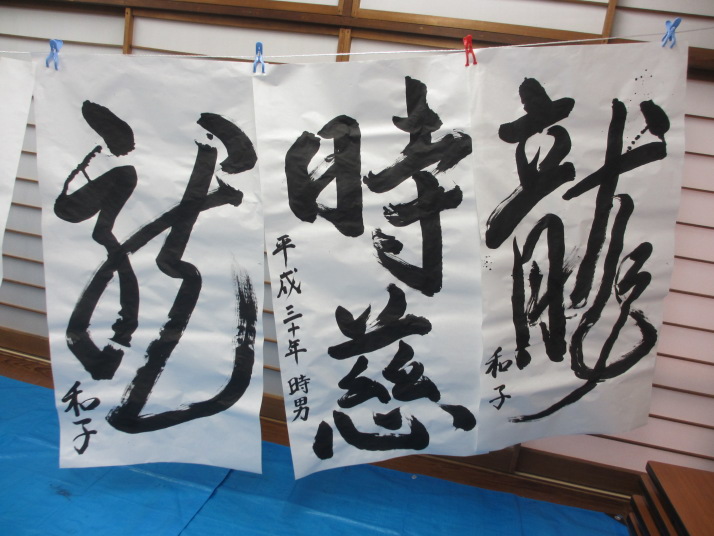 龍
和子
時慈
平成三十年 時男
龍
和子